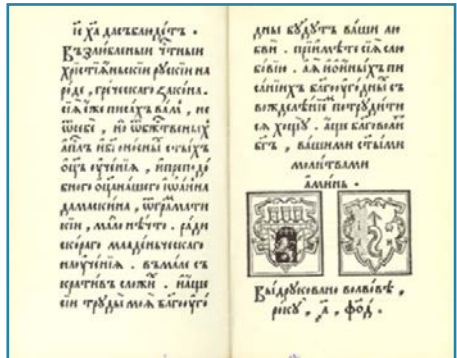 іс҃ ха̀ да съблюде́тъ .
Възлюбле́ныи чтⷭ҇ныи
хрⷭ҇тїа́ньскїи рускїи на
ро́де , гре́ческаго зако́на .
сїѧ̀ е́же писа́хъ ва́мъ , не
ѿ себѐ , но̀ ѿ бж҃твеныхъ
апⷭ҇лъ и҆ бг҃оно́сныхъ ст҃ы́хъ
оц҃ъ оуче́нїѧ , и҆ преподо́
бнаго оц҃а на́шего їѡа́нна
дамаски́на , ѿ грама́ти
кїи , ма́ло нѣ́что . ра́ди
ско́раго младе́ньческаго
наоуче́нїѧ . въма́ле съ
крати́въ сложи́х . и҆ а҆́ще
сїи труды̀ моѧ̀ бл҃гоуго́
дны бу́дутъ ва́ши лю
бви . прїимѣ́те сїѧ̀ с лю
бо́вїю . а҆ ѧ҆́з и҆ о҆ и҆ны́хъ пи
са́нїихъ бл҃гоуго́дныхъ съ
вожделѣ́нїемъ потруди́ти
сѧ хощу̀ . а҆́ще бл҃говоли́
бг҃ъ , ва́шими ст҃ы́ми
моли́твами
а҆ми́нь .
Вы́друковано во льво́вѣ ,
ро́ку , ҂а҃фо҃д .